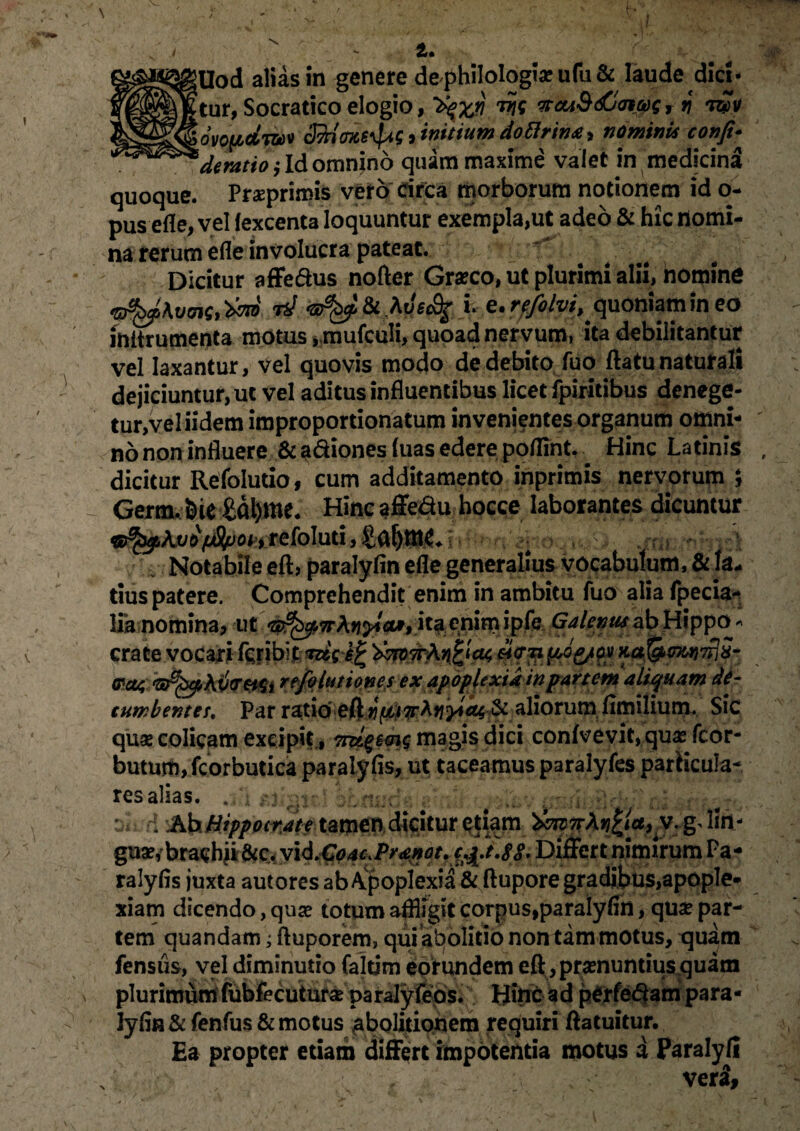 2.
QUod alias in genere de philologiæ usu & laude dici-
tur, Socratico elogio, Ἀρχὴ τῆς παιδεύσεως, ἡ τῶν
ὀνομάτων ἐπίσκεψις, initium doctrinæ, nominis consi-
deratio; Id omnino quàm maximè valet in medicinâ
quoque. Præprimis verò circa morborum notionem id o-
pus esse, vel sexcenta loquuntur exempla, ut adeò & hîc nomi-
na rerum esse involucra pateat.
Dicitur affectus noster Græco, ut plurimi alii, nomine
παράλυσις, ἀπὸ τῦ παρὰ & λύεσθαι i. e. resolvi, quoniam in eo
instrumenta motus, musculi, quoad nervum, ita debilitantur
vel laxantur, vel quovis modo de debito suo statu naturali
dejiciuntur, ut vel aditus influentibus licet spiritibus denege-
tur, vel iidem improportionatum invenientes organum omni-
nò non influere & actiones suas edere possint. Hinc Latinis
dicitur Resolutio, cum additamento inprimis nervorum;
Germ. die Lähme. Hinc affectu hocce laborantes dicuntur
παραλυόμενοι, resoluti, Lahme.
Notabile est, paralysin esse generalius vocabulum, & la-
tius patere. Comprehendit enim in ambitu suo alia specia-
lia nomina, ut παραπληγίαι, ita enim ipse Galenus ab Hippo-
crate vocari scribit τὰς ἐξ ἀποπληξίας εἴς τι μόριον κατασκηπτύ-
σας παραλύσεις, resolutiones ex apoplexiâ in partem aliquam de-
cumbentes. Par ratio est ἡμιπληγίας & aliorum similium. Sic
quæ colicam excipit, πάρεσις magis dici consvevit, quæ scor-
butum, scorbutica paralysis, ut taceamus paralyses particula-
res alias.
Ab Hippocrate tamen dicitur etiam ἀποπληξία, v. g. lin-
guæ, brachii &c. vid. Coac. Prænot. c.4.t.88. Differt nimirum Pa-
ralysis juxta autores ab Apoplexiâ & stupore gradibus, apople-
xiam dicendo, quæ totum affligit corpus, paralysin, quæ par-
tem quandam; stuporem, qui abolitio non tàm motus, quàm
sensûs, vel diminutio saltim eorundem est, prænuntius quàm
plurimùm subsecuturæ paralyseos. Hinc ad perfectam para-
lysin & sensus & motus abolitionem requiri statuitur.
Ea propter etiam differt impotentia motus à Paralysi
verâ,